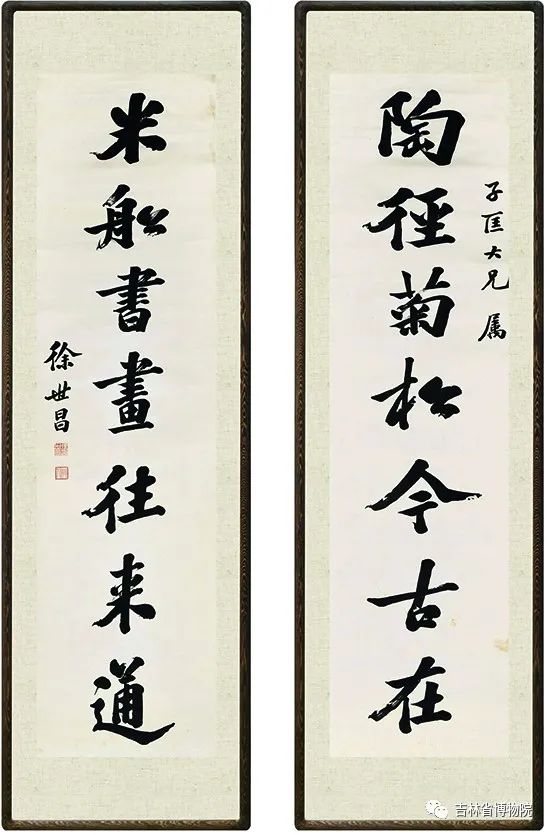 陶徑菊松今古在
子匡大兄 属
米船書畫往来通
徐世昌
吉林省博物院